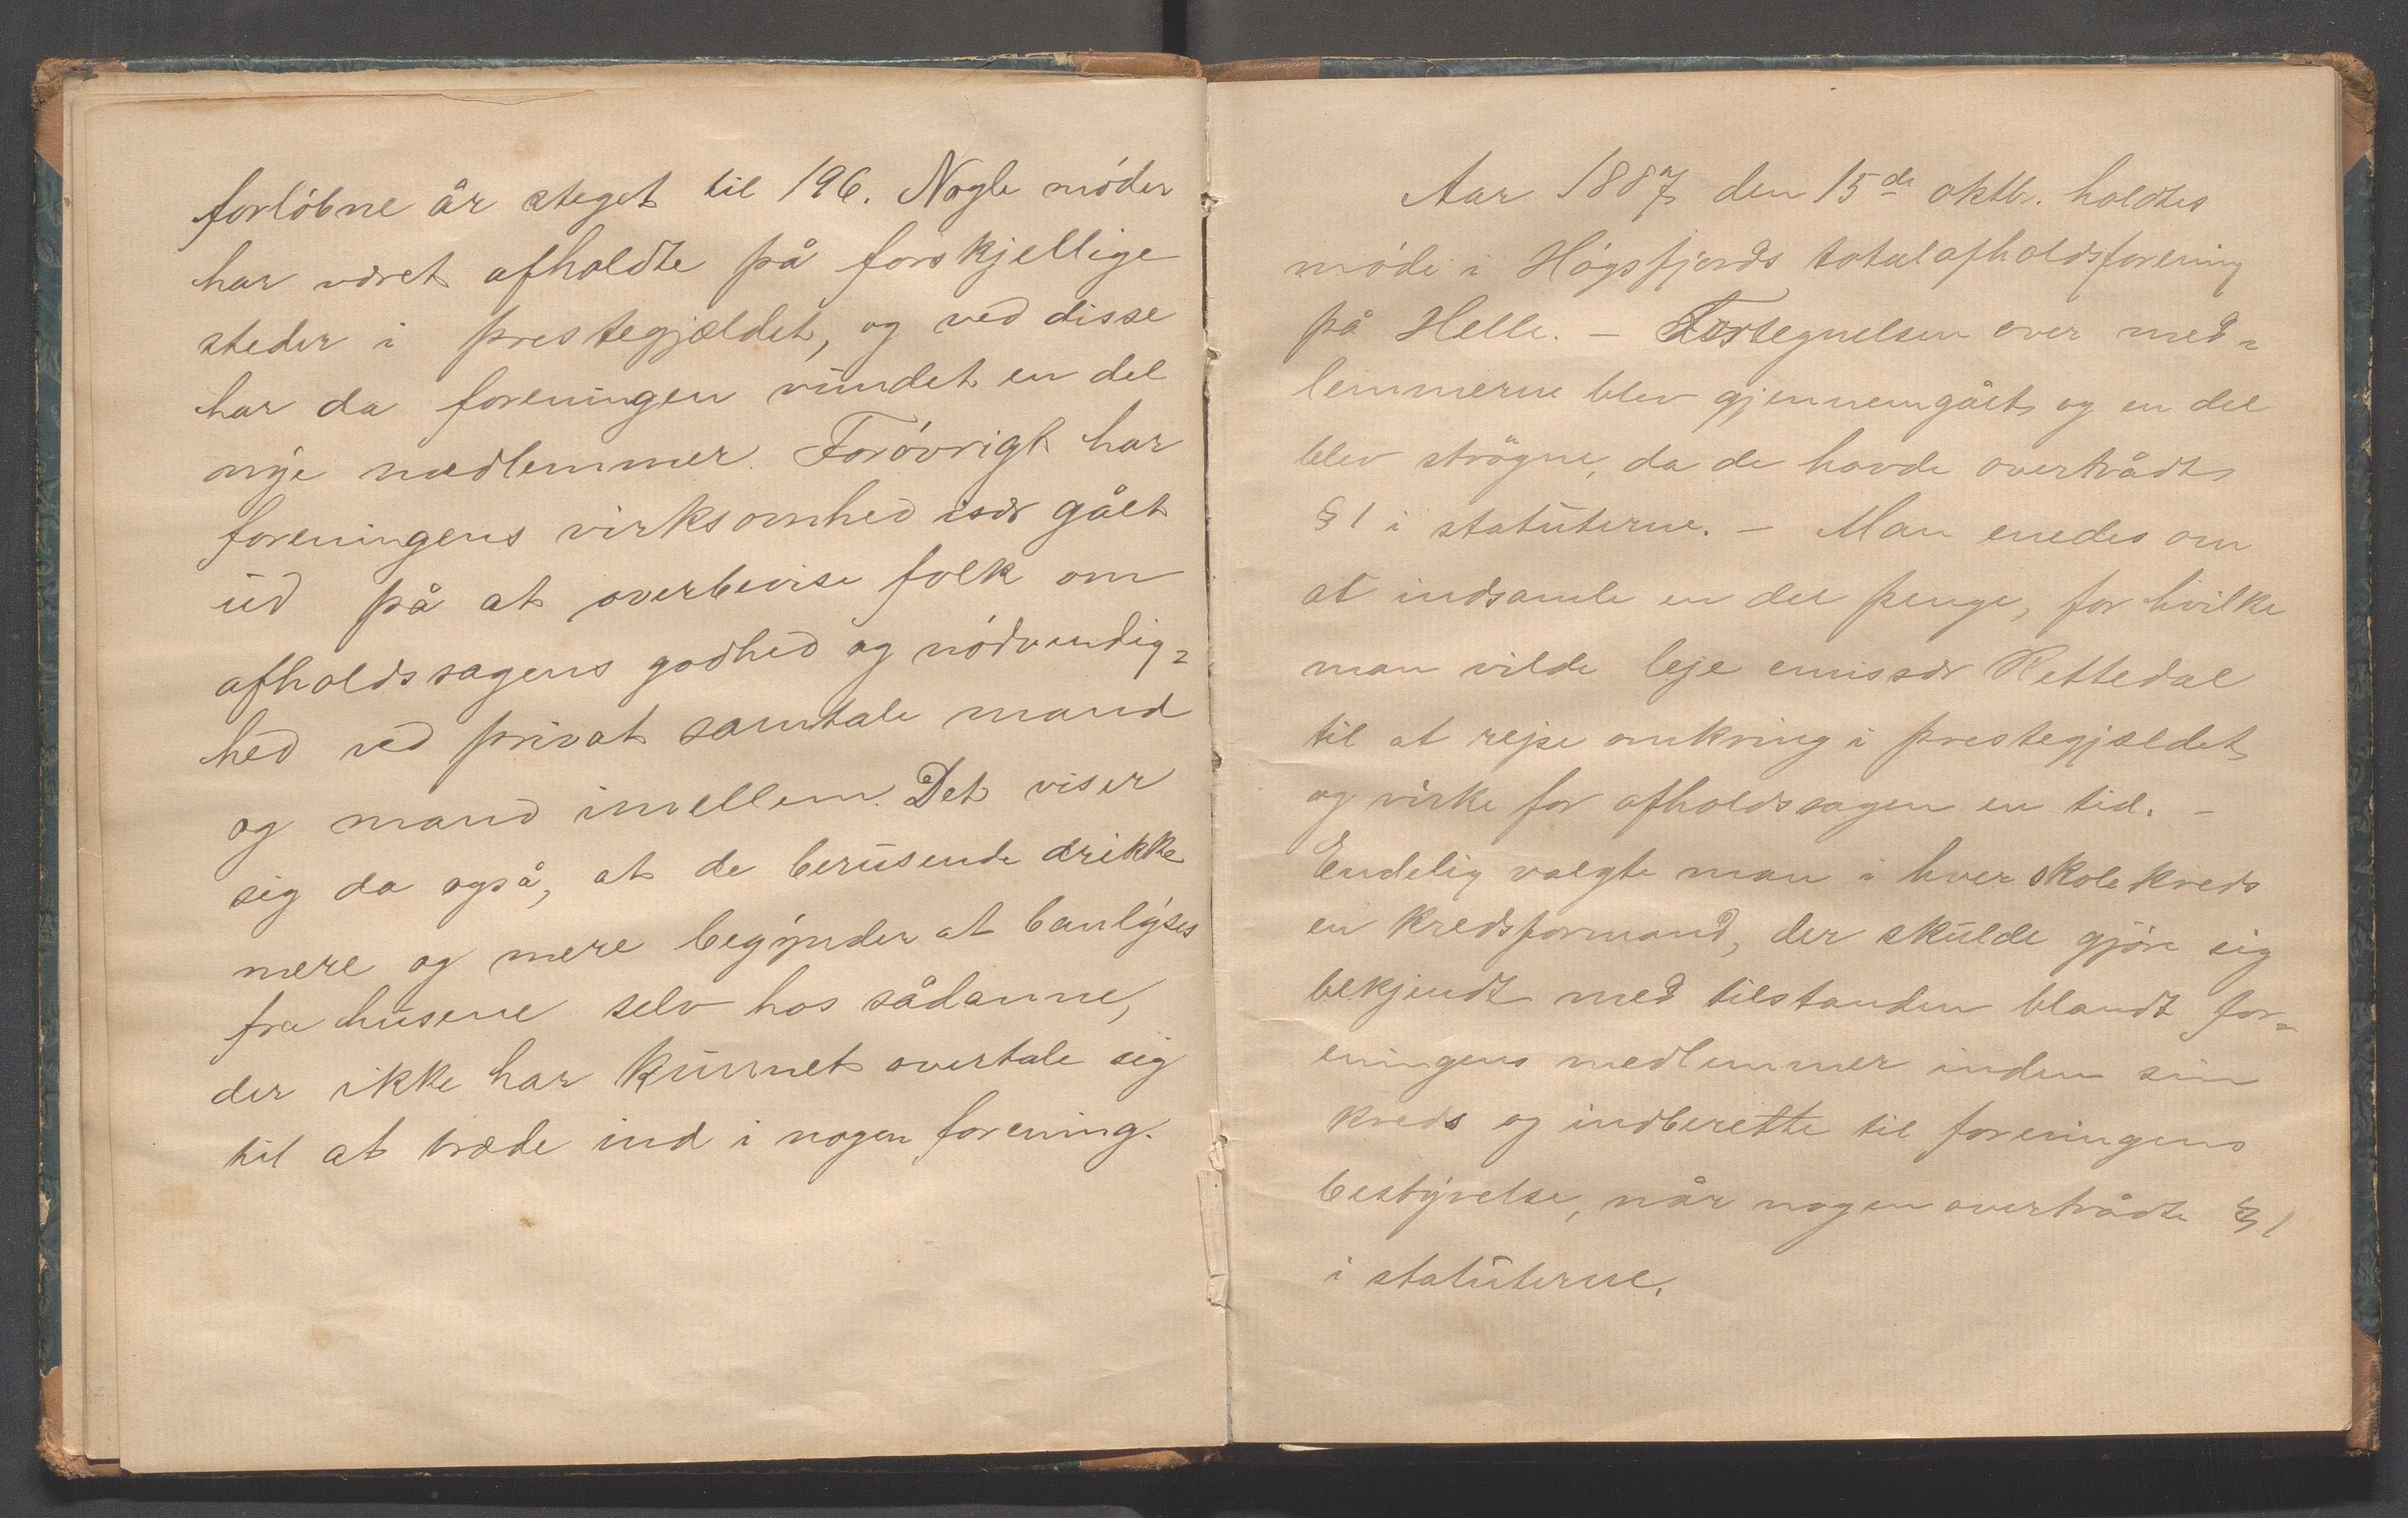 forløbne år steget til 196. Nogle møder
har været afholdte på forskjellige
steder i prestegjældet, og ved disse
har da foreningen vundet en del
nye medlemmer. Forøvrigt har
foreningens virksomhed især gået
ud på at overbevise folk om
afholdssagens godhed og nødvendig-
hed ved privat samtale mand
og mand imellem. Det viser
sig da også, at de berusende drikke
mere og mere begynder at banlyses
fra husene selv hos sådanne,
der ikke har kunnet overtale sig
til at træde ind i nogen forening.
Aar 1887 den 15de oktb. holdtes
møde i Høgsfjords totalafholdsforening
på Helle. – Fortegnelsen over med-
lemmerne blev gjennemgået og en del
blev strøgne, da de havde overtrådt
§ 1 i statuterne. – Man enedes om
at indsamle en del penge, for hvilke
man vilde leje emissær Rettedal
til at rejse omkring i prestegjældet
og virke for afholdssagen en tid. –
Endelig valgte man i hver skolekreds
en kredsformand, der skulde gjøre sig
bekjendt med tilstanden blandt for-
eningens medlemmer inden sin
kreds og indberette til foreningens
bestyrelse, når nogen overtrådte § 1
i statuterne.